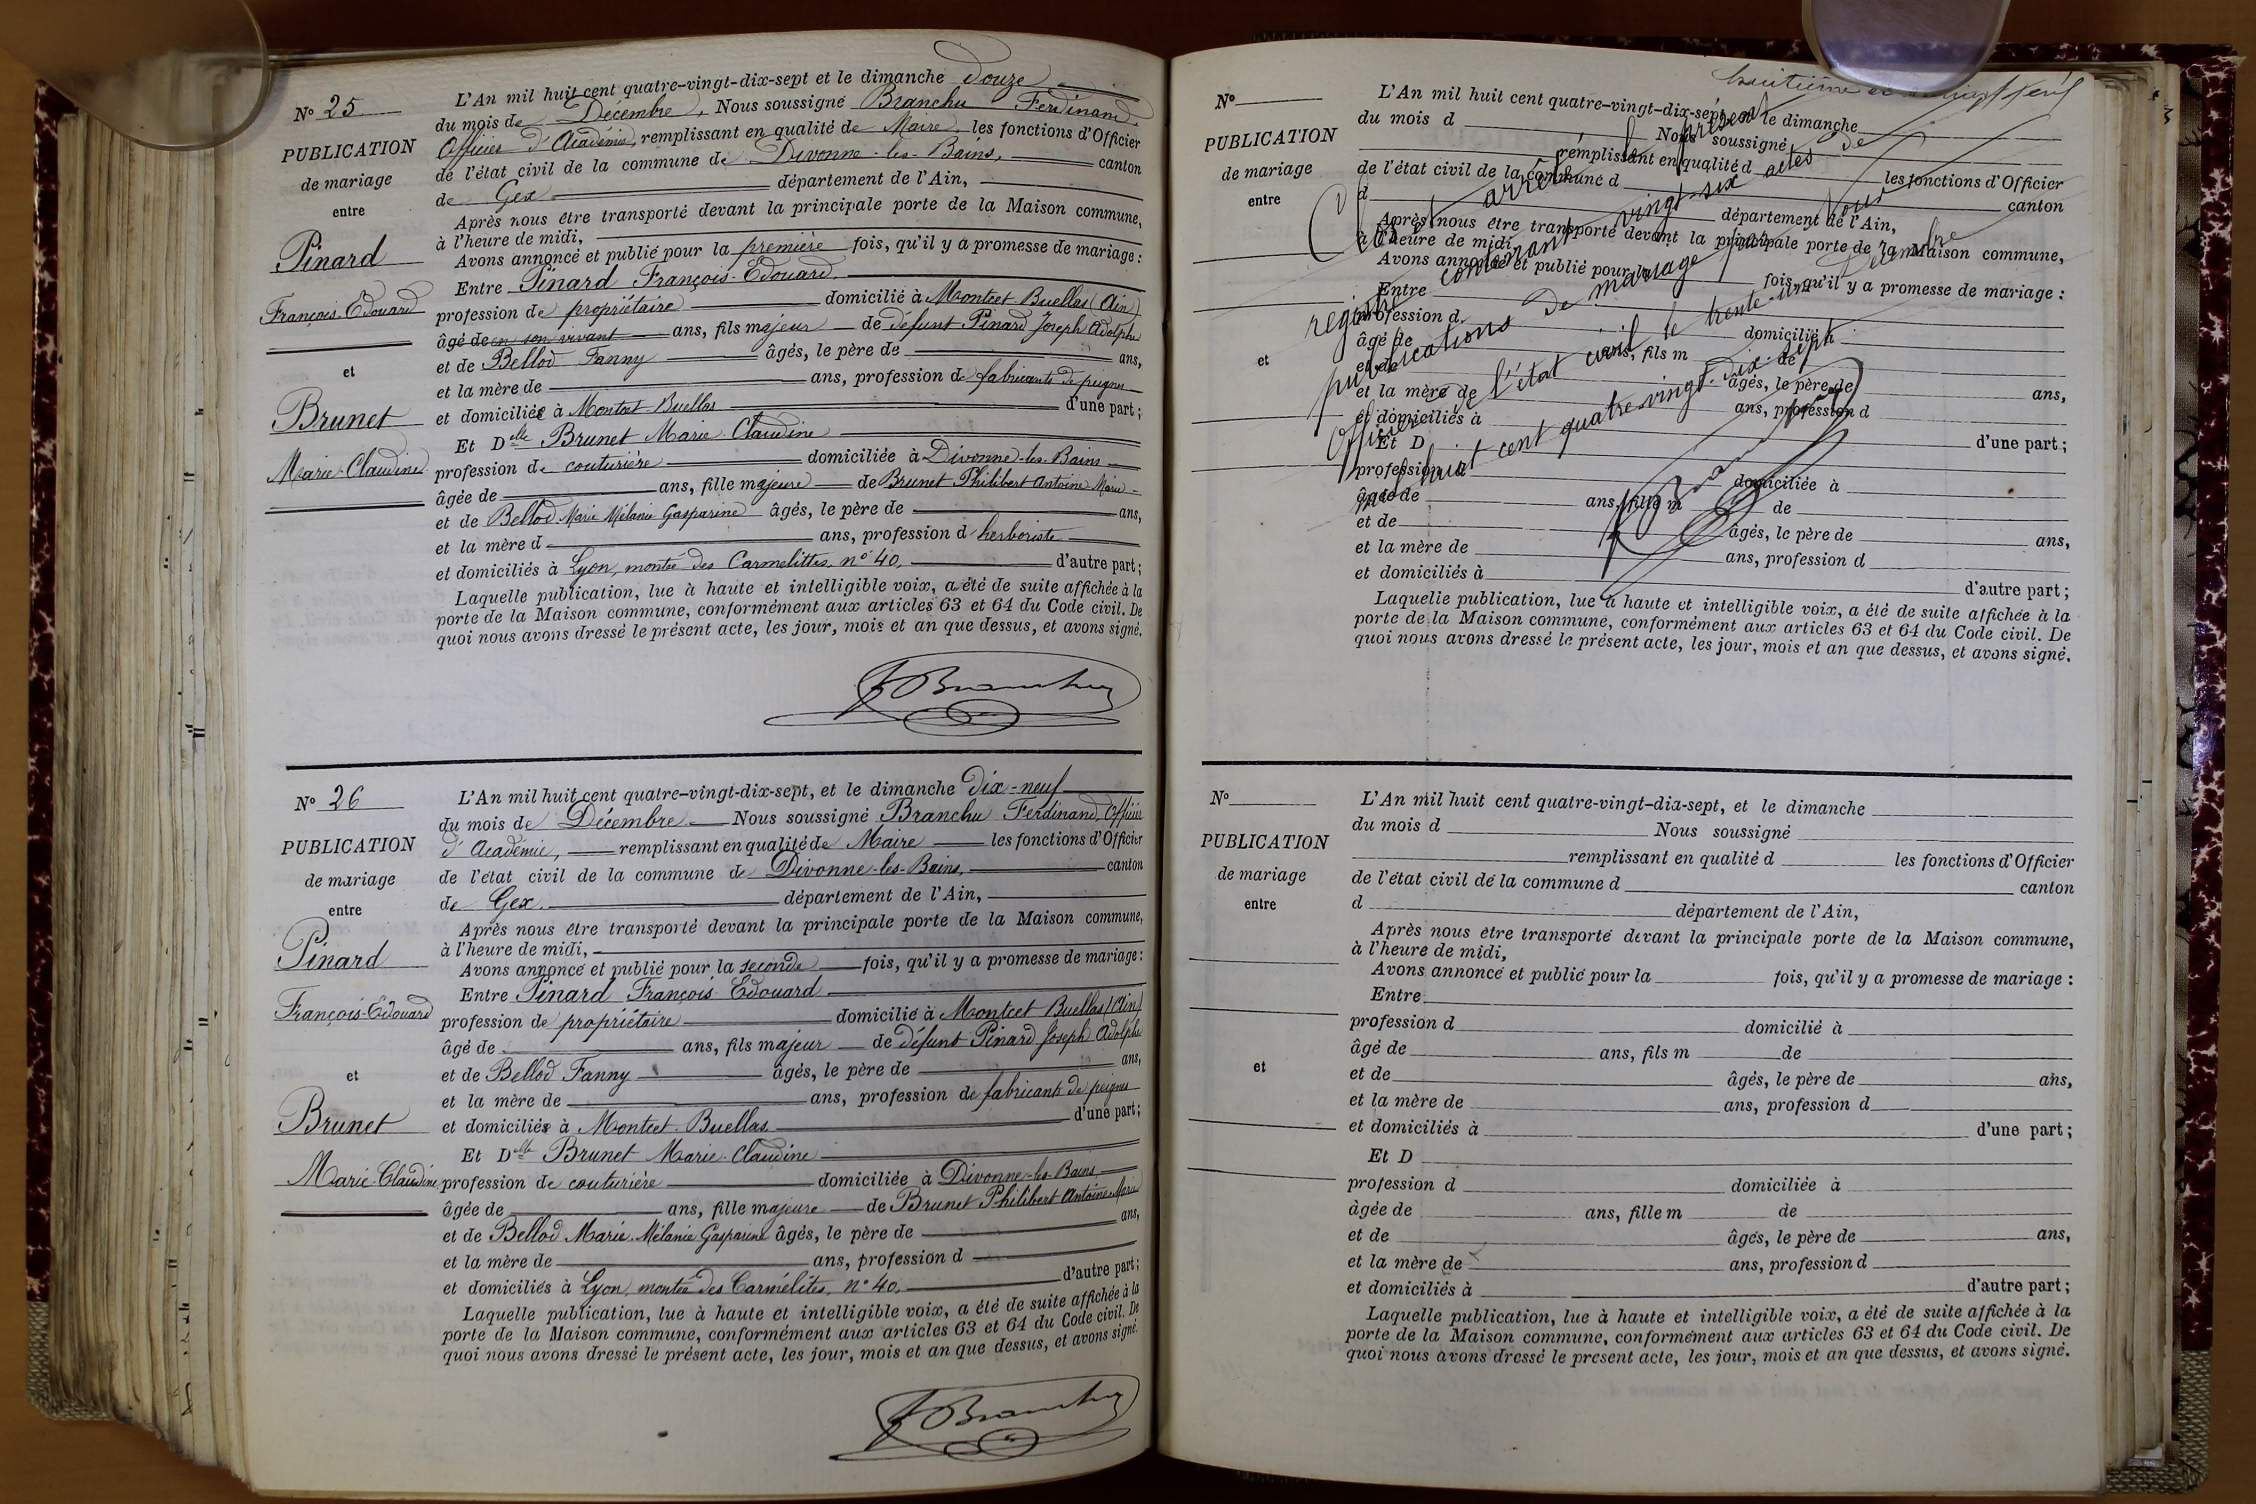 N° 25
PUBLICATION
de mariage
entre
Pinard
François-Edouard
et
Brunet
Marie-Claudine
L'An mil huit cent quatre-vingt-dix-sept et le dimanche douze
du mois de Décembre, Nous soussigné Branchu Ferdinand
Officier d'Académie, remplissant en qualité de Maire, les fonctions d'Officier
de l'état civil de la commune de Divonne-les-Bains, canton
de Gex département de l'Ain,
Après nous être transporté devant la principale porte de la Maison commune,
à l'heure de midi,
Avons annoncé et publié pour la première fois, qu'il y a promesse de mariage :
Entre Pinard François-Edouard
profession de propriétaire domicilié à Montcet-Buellas (Ain)
âgé de en son vivant ans, fils majeur de défunt Pinard Joseph Adolphe
et de Bellod Fanny âgés, le père de ans,
et la mère de ans, profession de fabricants de peignes
et domiciliés à Montcet-Buellas d'une part ;
Et Delle Brunet Marie-Claudine
profession de couturière domiciliée à Divonne-les-Bains
âgée de ans, fille majeure de Brunet Philibert Antoine Marie
et de Bellod Marie Mélanie Gasparine âgés, le père de ans,
et la mère d ans, profession d'herboriste
et domiciliés à Lyon, montée des Carmelittes, n° 40, d'autre part ;
Laquelle publication, lue à haute et intelligible voix, a été de suite affichée à la
porte de la Maison commune, conformément aux articles 63 et 64 du Code civil. De
quoi nous avons dressé le présent acte, les jour, mois et an que dessus, et avons signé.
F Branchu
N° 26
PUBLICATION
de mariage
entre
Pinard
François-Edouard
et
Brunet
Marie-Claudine
L'An mil huit cent quatre-vingt-dix-sept, et le dimanche dix-neuf
du mois de Décembre Nous soussigné Branchu Ferdinand, Officier
d'Académie, remplissant en qualité de Maire les fonctions d'Officier
de l'état civil de la commune de Divonne-les-Bains, canton
de Gex. département de l'Ain,
Après nous être transporté devant la principale porte de la Maison commune,
à l'heure de midi,
Avons annoncé et publié pour la seconde fois, qu'il y a promesse de mariage :
Entre Pinard François-Edouard
profession de propriétaire domicilié à Montcet-Buellas (Ain)
âgé de ans, fils majeur de défunt Pinard Joseph Adolphe
et de Bellod Fanny âgés, le père de ans,
et la mère de ans, profession de fabricants de peignes
et domiciliés à Montcet-Buellas d'une part ;
Et Delle Brunet Marie-Claudine
profession de couturière domiciliée à Divonne-les-Bains
âgée de ans, fille majeure de Brunet Philibert Antoine Marie
et de Bellod Marie Mélanie Gasparine âgés, le père de ans,
et la mère de ans, profession d
et domiciliés à Lyon, montée des Carmélites, n° 40, d'autre part ;
Laquelle publication, lue à haute et intelligible voix, a été de suite affichée à la
porte de la Maison commune, conformément aux articles 63 et 64 du Code civil. De
quoi nous avons dressé le présent acte, les jour, mois et an que dessus, et avons signé.
F Branchu
N°
PUBLICATION
de mariage
entre
et
L'An mil huit cent quatre-vingt-dix-sept, et le dimanche
du mois d Nous soussigné
remplissant en qualité d les fonctions d'Officier
de l'état civil de la commune d canton
d département de l'Ain,
Après nous être transporté devant la principale porte de la Maison commune,
à l'heure de midi,
Avons annoncé et publié pour la fois, qu'il y a promesse de mariage :
Entre
profession d domicilié à
âgé de ans, fils m de
et de âgés, le père de ans,
et la mère de ans, profession d
et domiciliés à d'une part ;
Et D
profession d domiciliée à
âgée de ans, fille m de
et de âgés, le père de ans,
et la mère de ans, profession d
et domiciliés à d'autre part ;
Laquelle publication, lue à haute et intelligible voix, a été de suite affichée à la
porte de la Maison commune, conformément aux articles 63 et 64 du Code civil. De
quoi nous avons dressé le présent acte, les jour, mois et an que dessus, et avons signé.
Clos et arrêté le présent
registre contenant vingt-six actes de
publications de mariage par Nous
Officier de l'état civil le trente-un Décembre
mil huit cent quatre-vingt-dix-sept
F Branchu
N°
PUBLICATION
de mariage
entre
et
L'An mil huit cent quatre-vingt-dix-sept, et le dimanche
du mois d Nous soussigné
remplissant en qualité d les fonctions d'Officier
de l'état civil de la commune d canton
d département de l'Ain,
Après nous être transporté devant la principale porte de la Maison commune,
à l'heure de midi,
Avons annoncé et publié pour la fois, qu'il y a promesse de mariage :
Entre
profession d domicilié à
âgé de ans, fils m de
et de âgés, le père de ans,
et la mère de ans, profession d
et domiciliés à d'une part ;
Et D
profession d domiciliée à
âgée de ans, fille m de
et de âgés, le père de ans,
et la mère de ans, profession d
et domiciliés à d'autre part ;
Laquelle publication, lue à haute et intelligible voix, a été de suite affichée à la
porte de la Maison commune, conformément aux articles 63 et 64 du Code civil. De
quoi nous avons dressé le présent acte, les jour, mois et an que dessus, et avons signé.